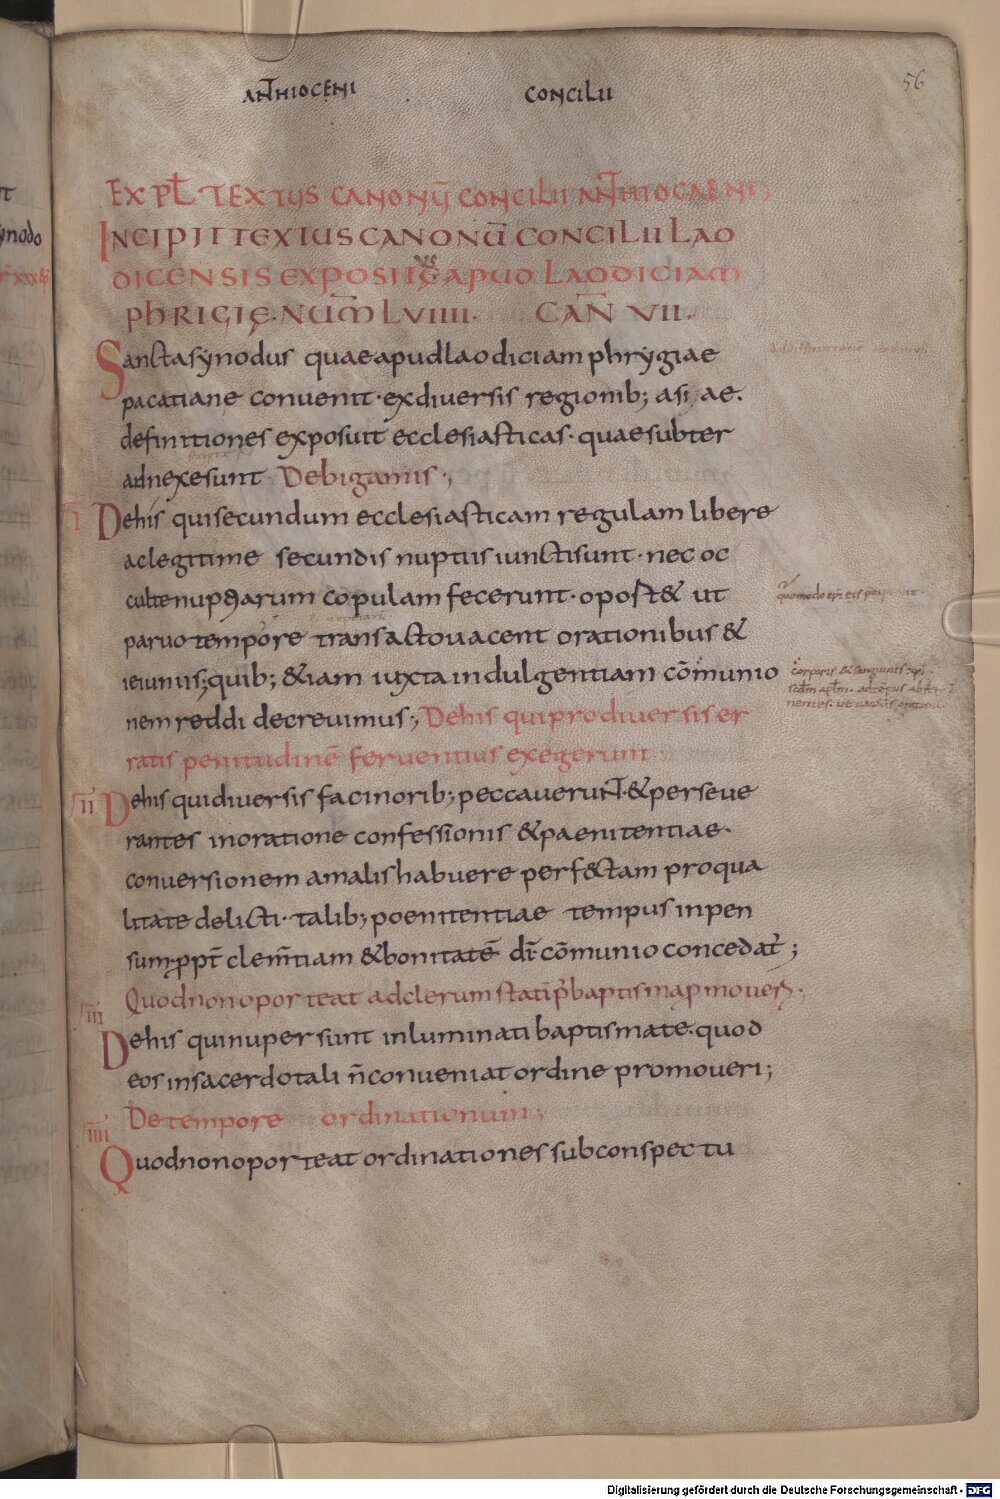 ANTHIOCENI CONCILII 56
EXPŁ TEXTUS CANONŪ CONCILII ANTHIOCAENI
INCIPIT TEXTUS CANONŪ CONCILII LAO
DICENSIS EXPOSITI APUD LAODICIAM
PHRIGIĘ · NUM̄ LVIIII · CAN̄ VII ·
Sancta synodus quae apud laodiciam phrygiae
pacatiane conuenit · ex diuersis regionib; asi ae ·
definitiones exposuit ecclesiasticas · quae subter
adnexe sunt De bigamis ·,
I De his qui secundum ecclesiasticam regulam libere
ac legitime secundis nuptiis iuncti sunt · nec oc
culte nuptiarum copulam fecerunt · oportet ut
paruo tempore transacto uacent orationibus &
ieiuniis; quib; & iam iuxta indulgentiam cōmunio
nem reddi decreuimus; De his qui pro diuersis er
ratis penitudinē feruentius exegerunt
II De his qui diuersis facinorib; peccauerunt · & perseue
rantes in oratione confessionis & paenitentiae ·
conuersionem a malis habuere perf&tam pro qua
litate delicti · talib; poenitentiae tempus inpen
sum · ppt̄ clem̄tiam & bonitatē dī cōmunio concedat̄ ;
Quod non oporteat ad clerum stati p̄ baptismā pmoueri ·
III De his qui nuper sunt inluminati baptismate · quod
eos in sacerdotali n̄ conueniat ordine promoueri ;
De tempore ordinationum ;
IIII Quod non oporteat ordinationes sub conspectu
Digitalisierung gefördert durch die Deutsche Forschungsgemeinschaft - DFG